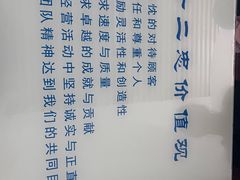 价值观
忧的对待顾客
任和尊重个人
励灵活性和创造性
求速度与质量
求卓越的成就与贡献
经营活动中坚持诚实与正直
团队精神达到我们的共同目